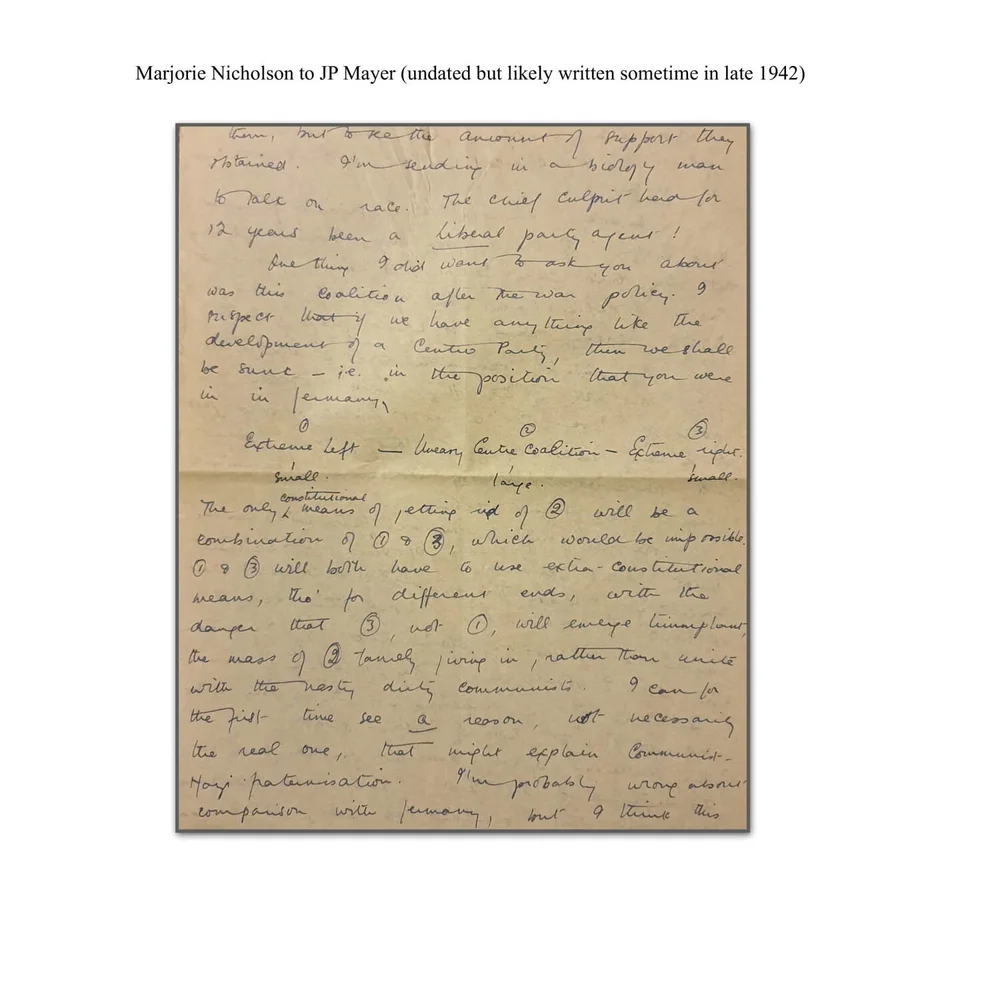 Marjorie Nicholson to JP Mayer (undated but likely written sometime in late 1942)
them, but to see the amount of support they
obtained. I'm sending in a biology man
to talk on race. The chief culprit had for
12 years been a Liberal party agent!
One thing I did want to ask you about
was this coalition after the war policy. I
suspect that if we have anything like the
development of a Centre Party, then we shall
be sunk – i.e. in the position that you were
in in Germany,
① ② ③
Extreme Left — Uneasy Centre Coalition – Extreme right.
small. large. small.
constitutional
The only means of getting rid of ② will be a
combination of ① & ③, which would be impossible.
① & ③ will both have to use extra-constitutional
means, tho' for different ends, with the
danger that ③, not ①, will emerge triumphant,
the mass of ② tamely giving in, rather than unite
with the nasty dirty communists. I can for
the first time see a reason, not necessarily
the real one, that might explain Communist-
Nazi fraternisation. I'm probably wrong about
comparison with Germany, but I think this